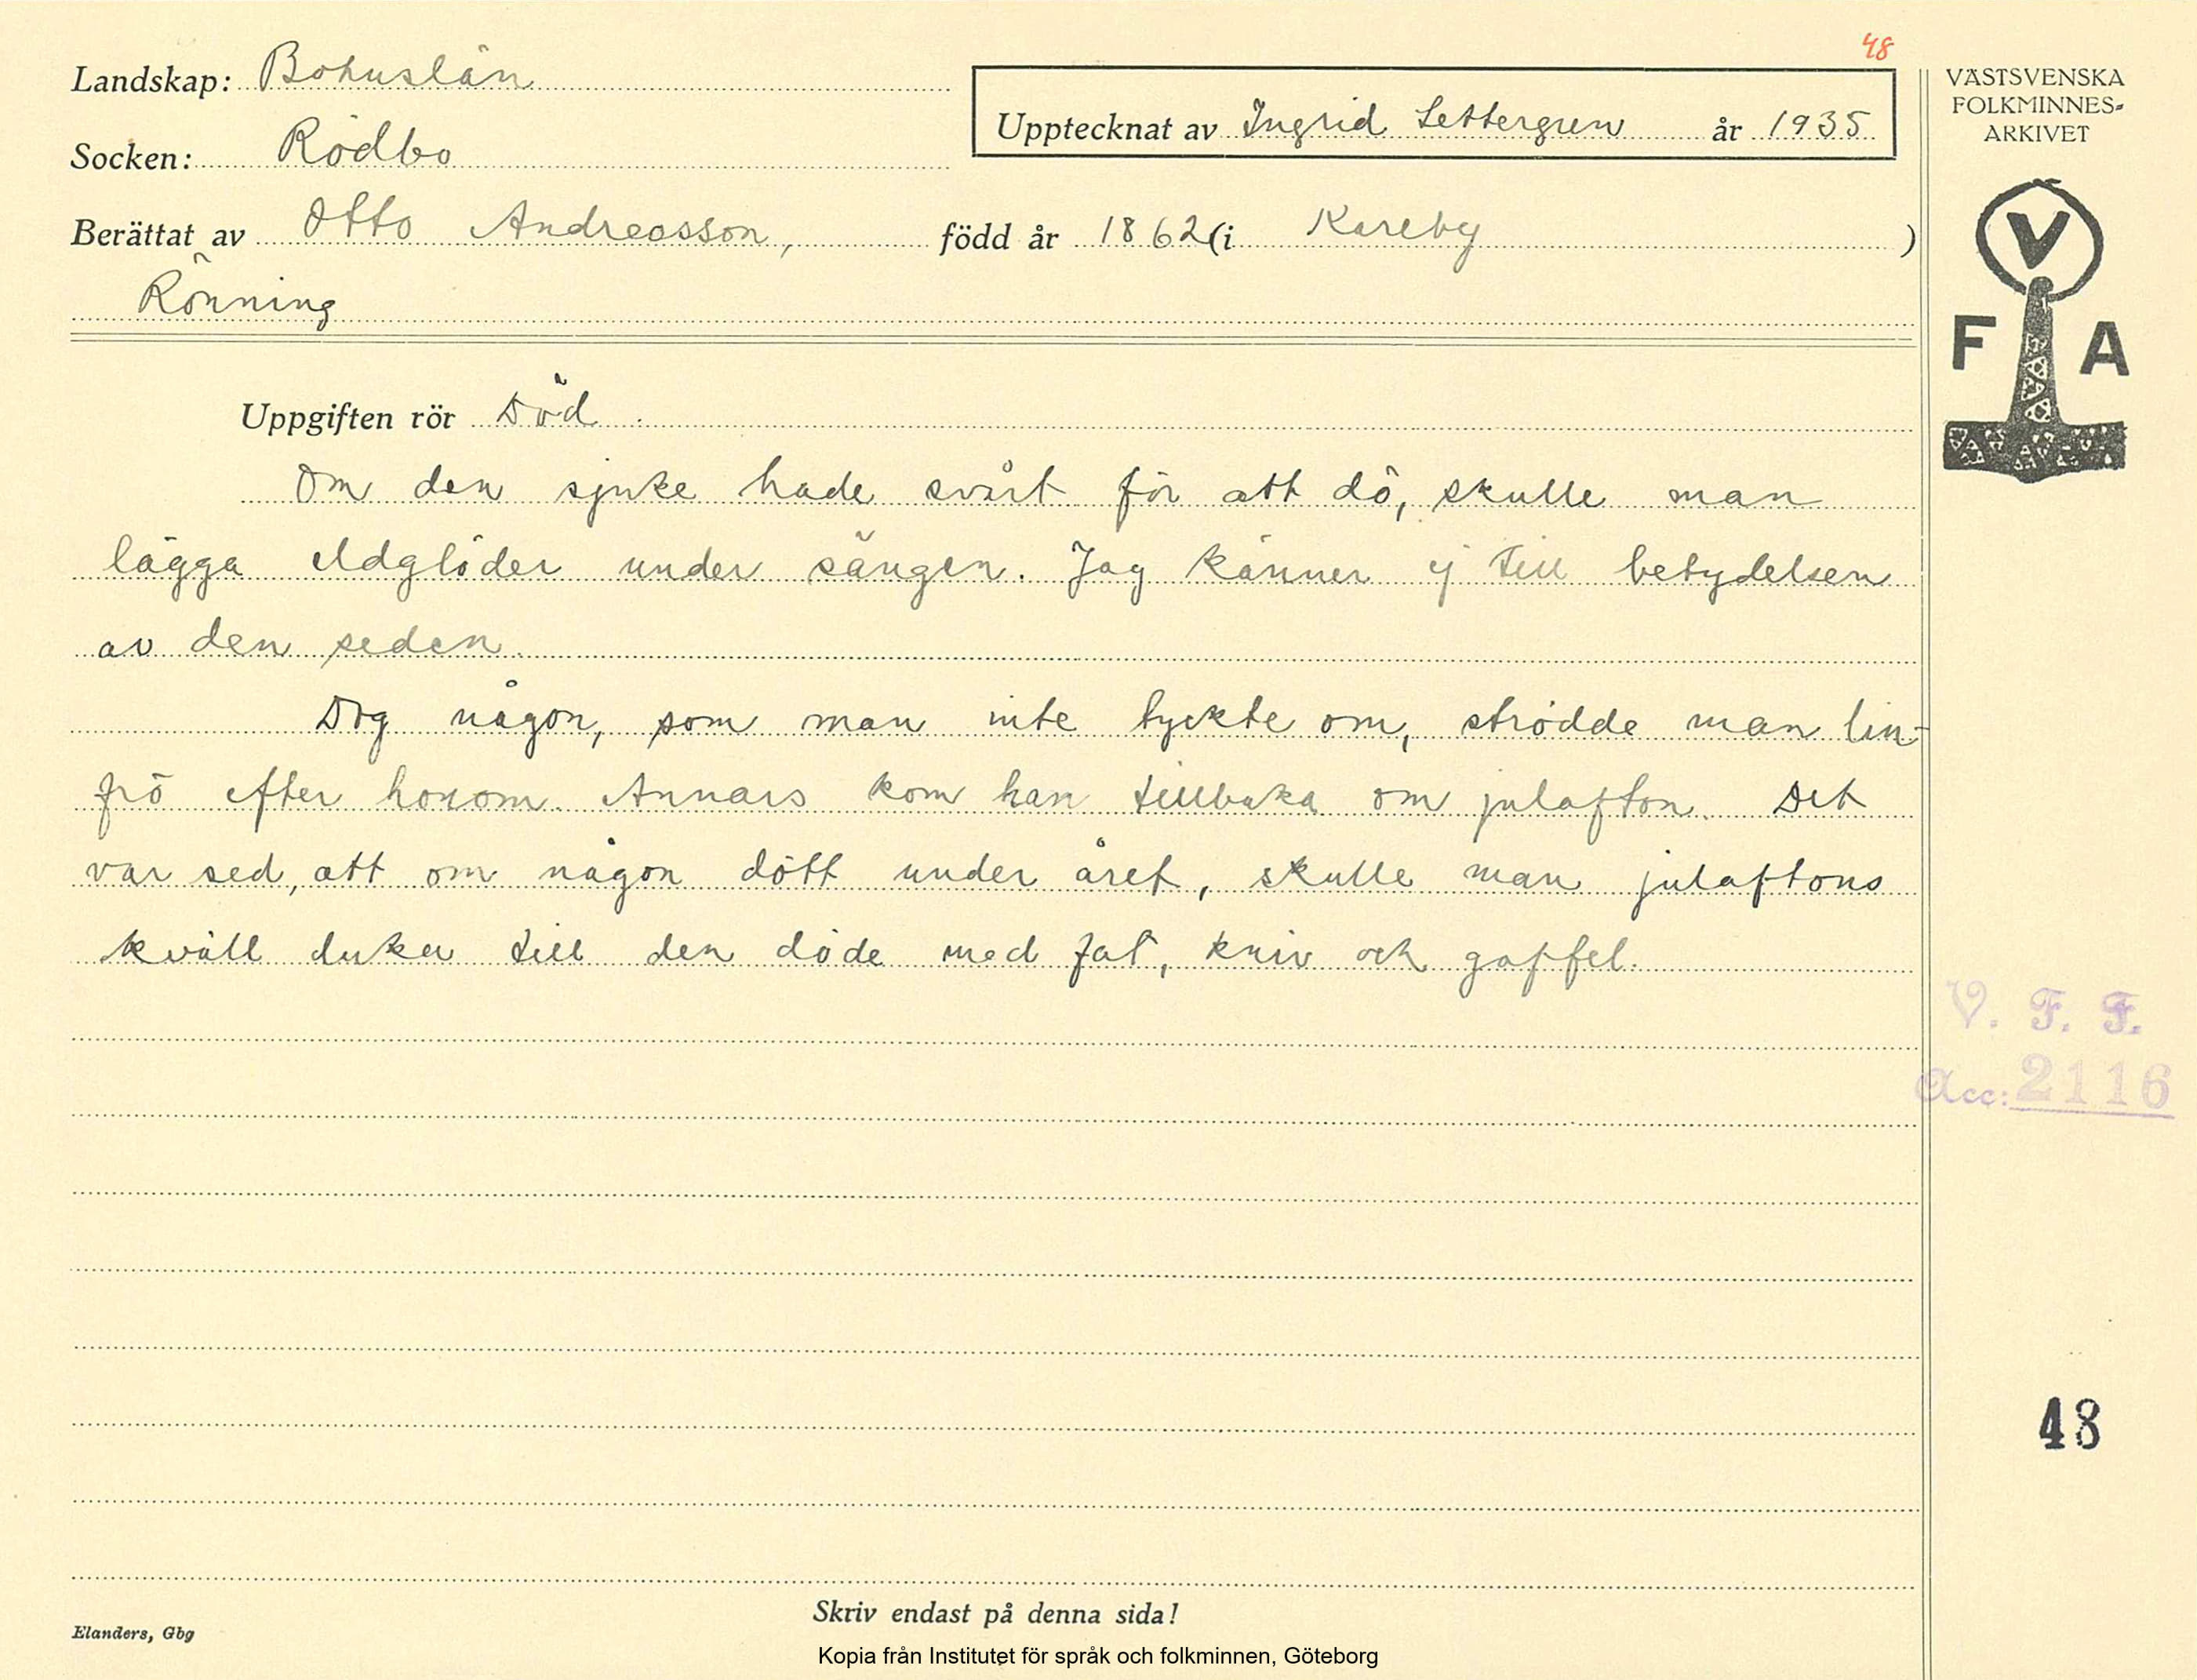 48
Landskap: Bohuslän
Socken: Rödbo
Upptecknat av Ingrid Settergren år 1935
Berättat av Otto Andreasson, född år 1862 (i Kareby )
Rönning
VÄSTSVENSKA
FOLKMINNES-
ARKIVET
V
F A
Uppgiften rör Död.
Om den sjuke hade svårt för att dö, skulle man
lägga eldglöder under sängen. Jag känner ej till betydelsen
av den seden.
Dog någon, som man inte tyckte om, strödde man lin-
frö efter honom. Annars kom han tillbaka om julafton. Det
var sed, att om någon dött under året, skulle man julaftons
kväll duka till den döde med fat, kniv och gaffel.
V. F. F.
Acc: 2116
48
Skriv endast på denna sida!
Elanders, Gbg
Kopia från Institutet för språk och folkminnen, Göteborg